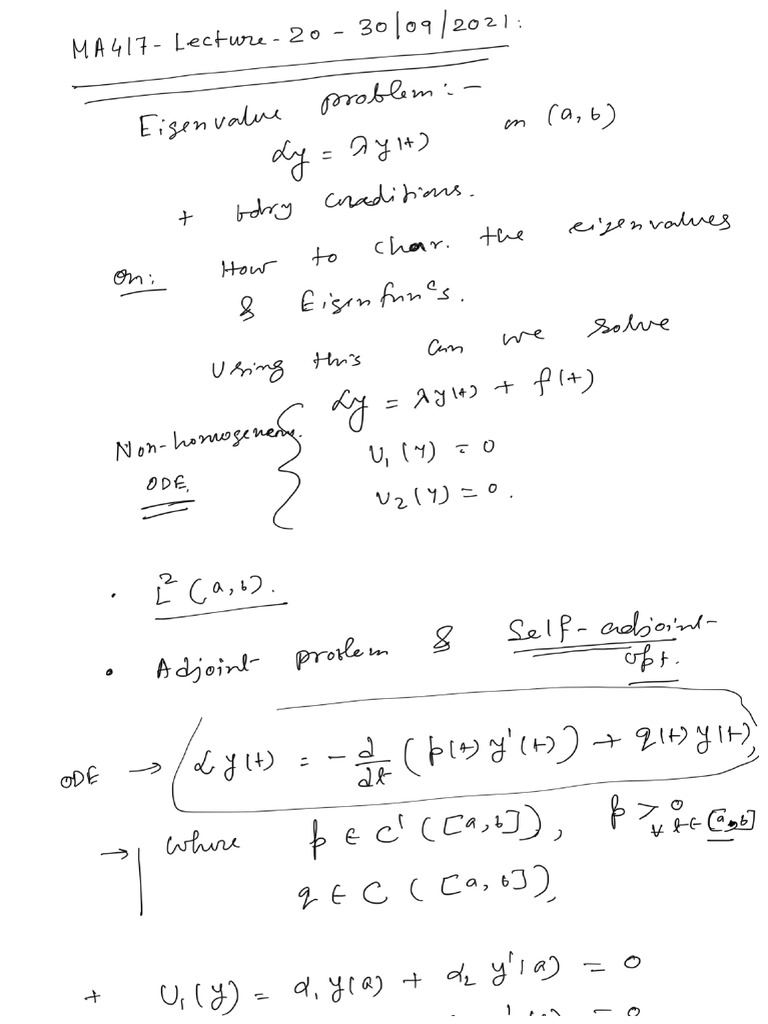 MA417 - Lecture - 20 - 30/09/2021:
Eigenvalue problem: -
Ly = λy(t) on (a, b)
+ bdry conditions.
Qn: How to char. the eigenvalues
& Eigenfuncs.
Using this can we solve
Ly = λy(t) + f(t)
Non-homogeneous
ODE.
U₁(y) = 0
U₂(y) = 0.
• L²(a, b).
• Adjoint problem & Self-adjoint
opt.
ODE → Ly(t) = - d/dt (p(t) y'(t)) + q(t) y(t),
→ where p ∈ C¹([a, b]), p > 0 ∀ t ∈ [a, b]
q ∈ C([a, b]),
+ U₁(y) = α₁ y(a) + α₂ y'(a) = 0